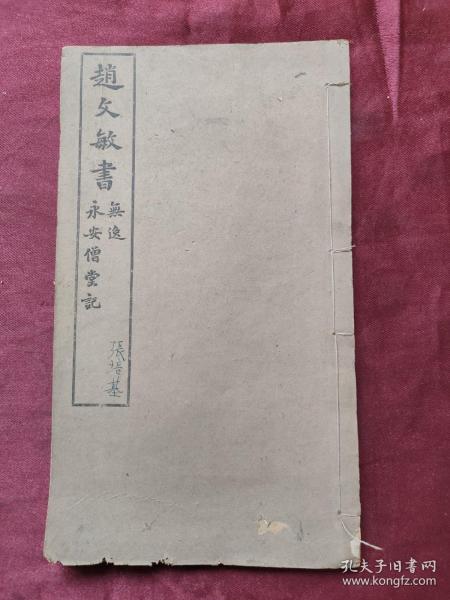 趙文敏書
無逸
永安僧堂記
張培基
孔夫子旧书网
www.kongfz.com